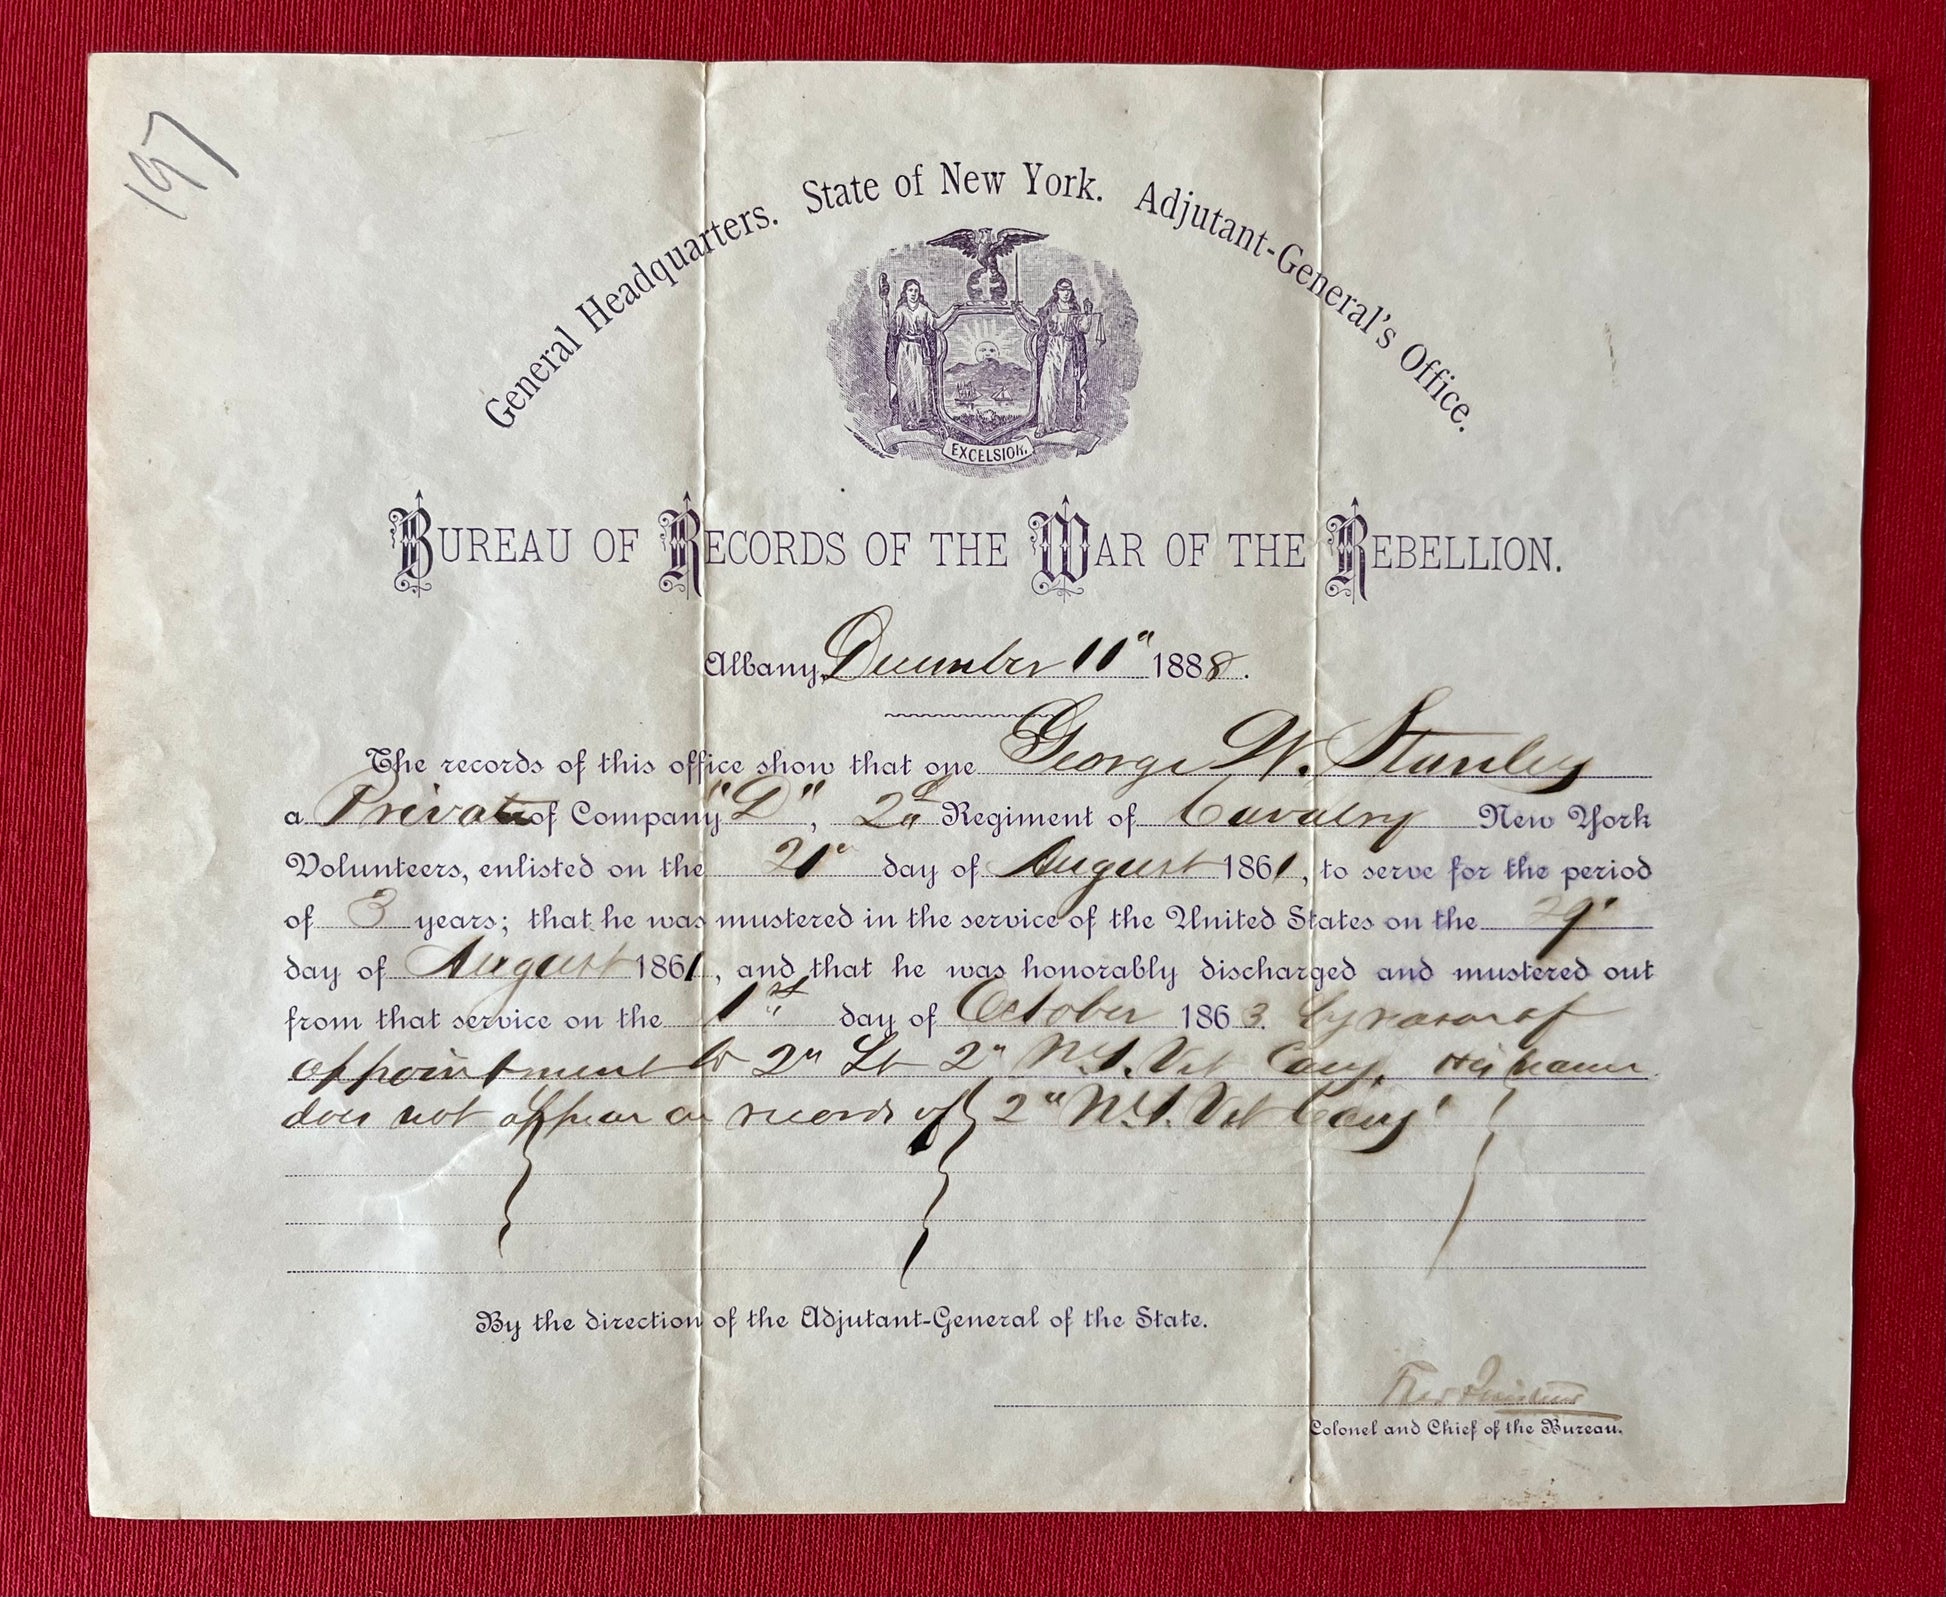 197
General Headquarters. State of New York. Adjutant-General's Office.
EXCELSIOR.
BUREAU OF RECORDS OF THE WAR OF THE REBELLION.
Albany, December 11" 1888.
The records of this office show that one George W. Stanley
a Private of Company "D", 2d Regiment of Cavalry New York
Volunteers, enlisted on the 21" day of August 1861, to serve for the period
of 3 years; that he was mustered in the service of the United States on the 29"
day of August 1861, and that he was honorably discharged and mustered out
from that service on the 1st day of October 1863. by reason of
appointment to 2" Lt 2" N.Y. Vet Cavy. His name
does not appear on records of 2" N.Y. Vet Cavy'
By the direction of the Adjutant-General of the State.
Colonel and Chief of the Bureau.